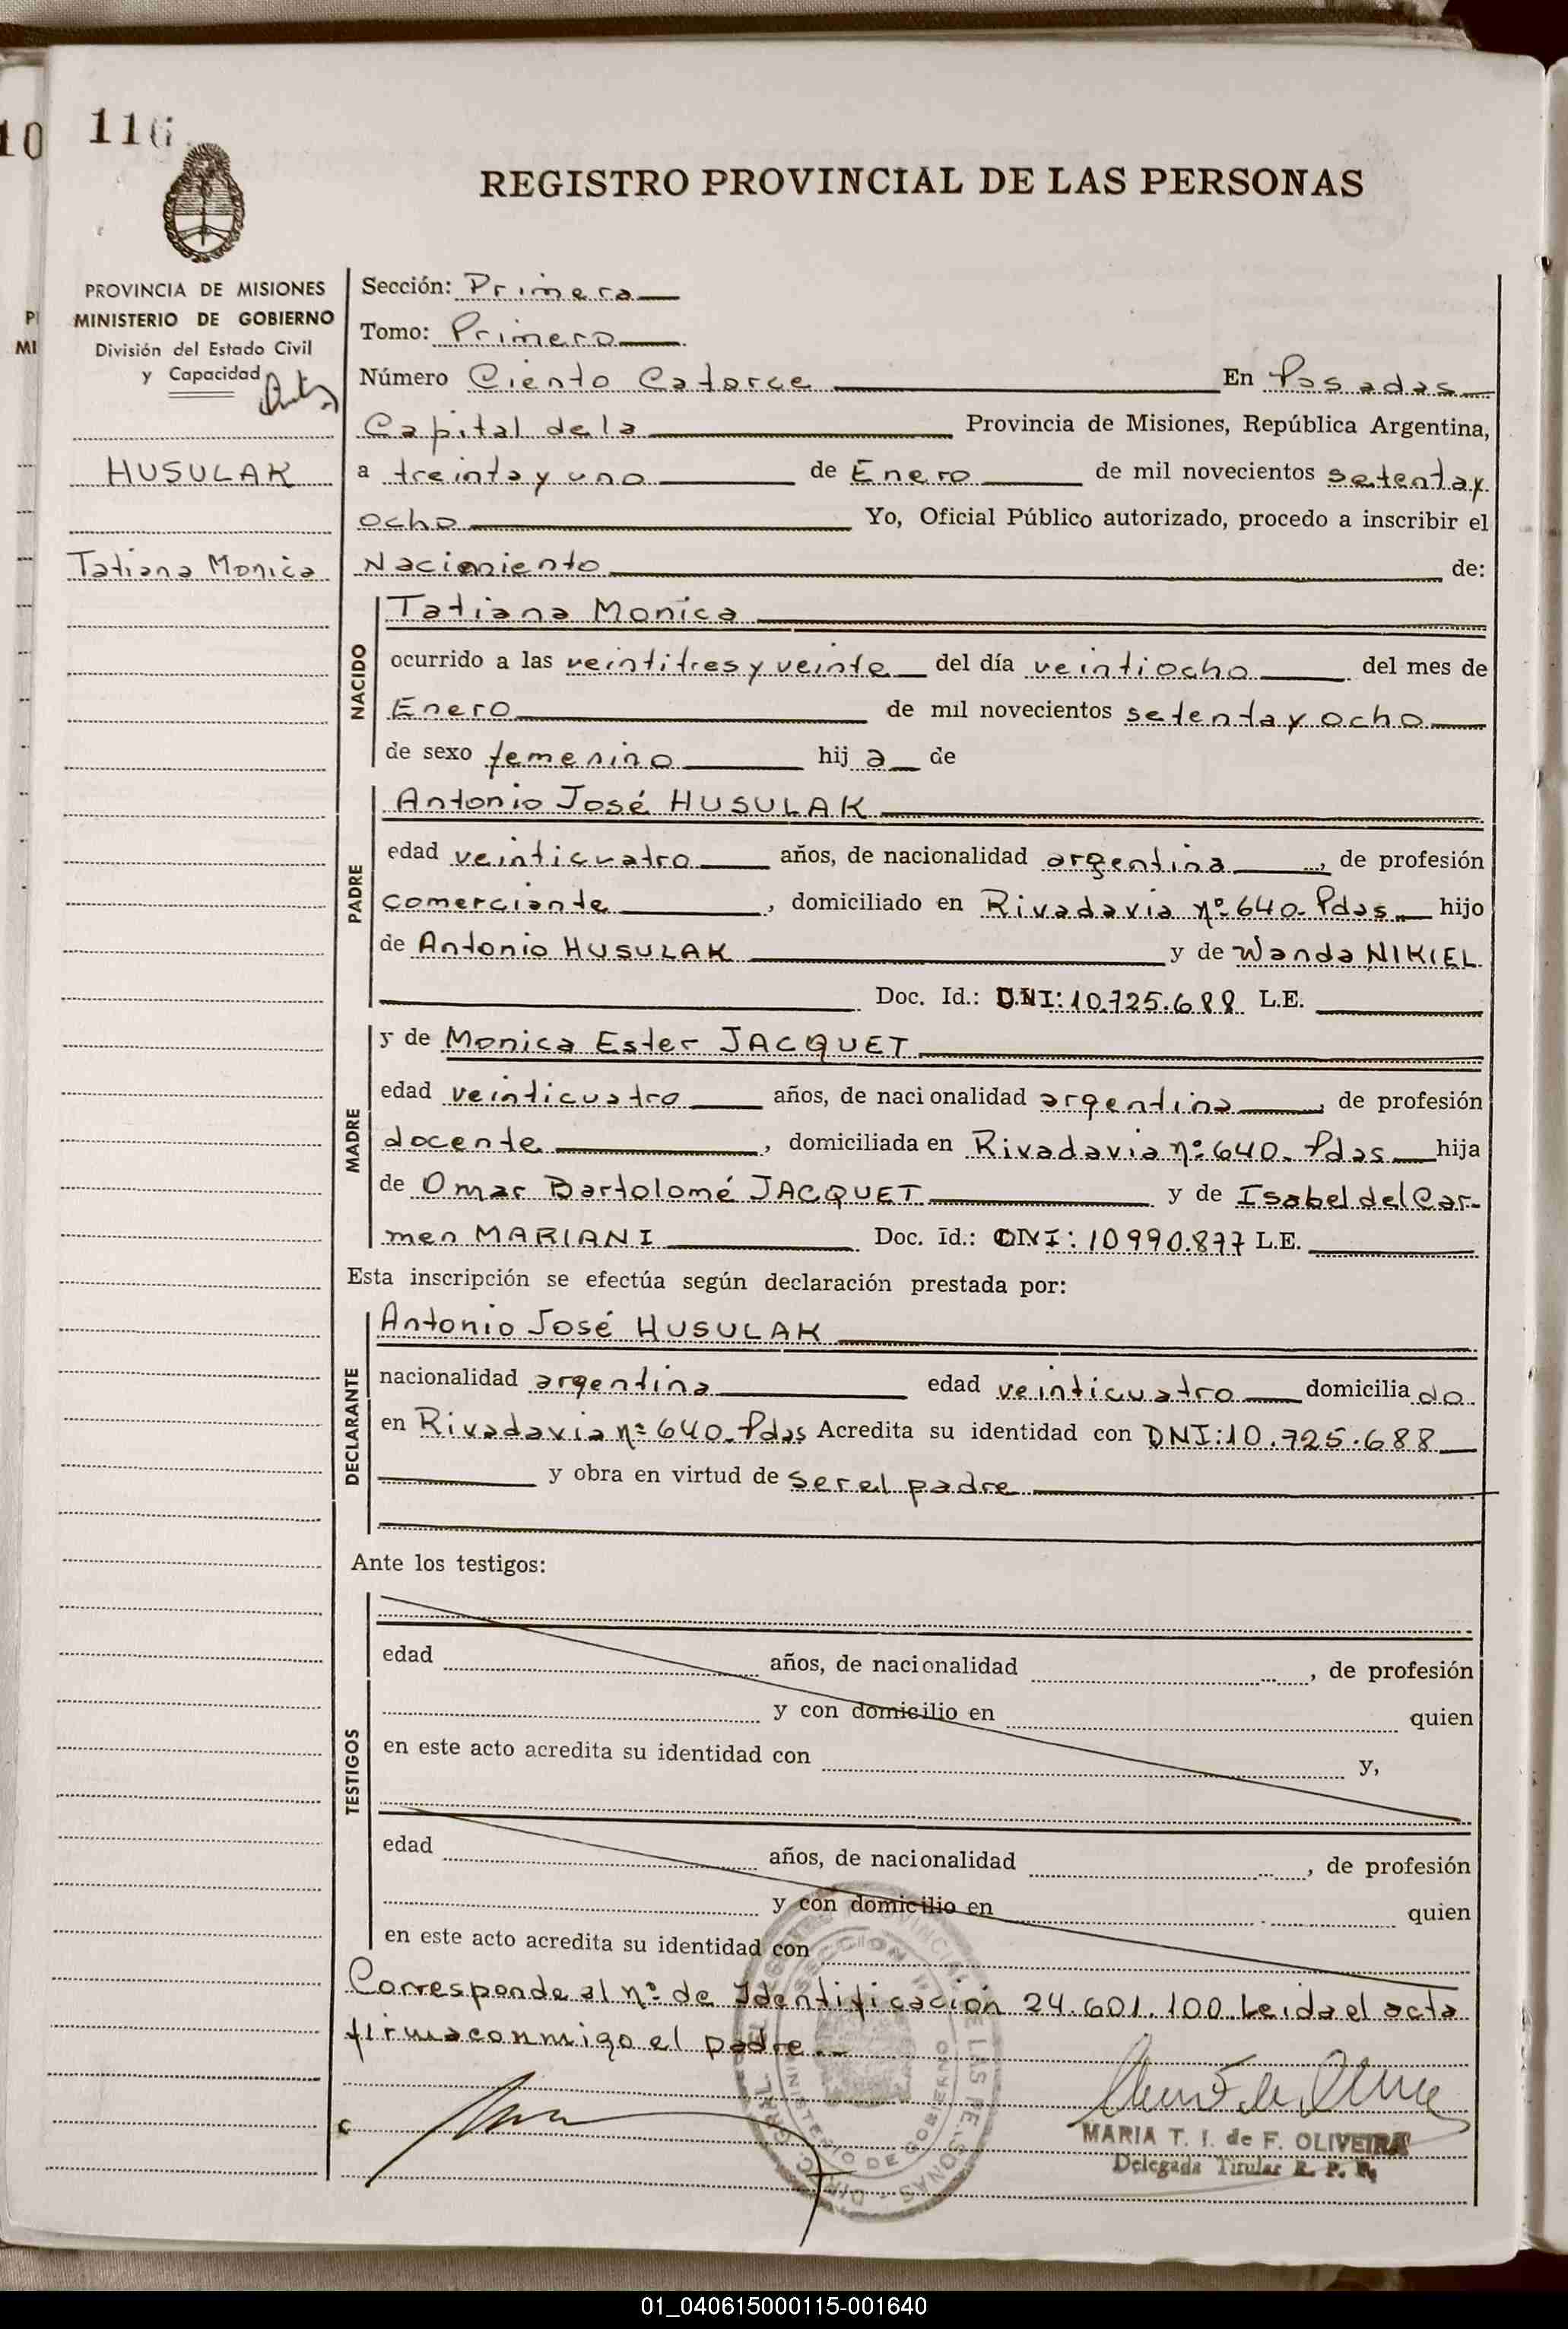 10
116
REGISTRO PROVINCIAL DE LAS PERSONAS
PROVINCIA DE MISIONES
MINISTERIO DE GOBIERNO
División del Estado Civil
y Capacidad
HUSULAK
Tatiana Monica
Sección: Primera
Tomo: Primero
Número Ciento Catorce En Posadas
Capital de la Provincia de Misiones, República Argentina,
a treinta y uno de Enero de mil novecientos setenta y
ocho Yo, Oficial Público autorizado, procedo a inscribir el
Nacimiento de:
NACIDO
Tatiana Monica
ocurrido a las veintitres y veinte del día veintiocho del mes de
Enero de mil novecientos setenta y ocho
de sexo femenino hij a de
PADRE
Antonio José HUSULAK
edad veinticuatro años, de nacionalidad argentina, de profesión
comerciante, domiciliado en Rivadavia nº 640. Pdas hijo
de Antonio HUSULAK y de Wanda NIKIEL
Doc. Id.: D.N.I: 10.725.688 L.E.
MADRE
y de Monica Ester JACQUET
edad veinticuatro años, de nacionalidad argentina, de profesión
docente, domiciliada en Rivadavia nº 640. Pdas hija
de Omar Bartolomé JACQUET y de Isabel del Car-
men MARIANI Doc. Id.: DNI: 10990.877 L.E.
Esta inscripción se efectúa según declaración prestada por:
DECLARANTE
Antonio José HUSULAK
nacionalidad argentina edad veinticuatro domicilia do
en Rivadavia nº 640. Pdas Acredita su identidad con DNI: 10.725.688
y obra en virtud de ser el padre
Ante los testigos:
TESTIGOS
edad años, de nacionalidad , de profesión
y con domicilio en quien
en este acto acredita su identidad con y,
edad años, de nacionalidad , de profesión
y con domicilio en quien
en este acto acredita su identidad con
Corresponde al nº de Identificación 24.601.100. Leida el acta
firma conmigo el padre.-
MINISTERIO DE GOBIERNO
MARIA T. I. de F. OLIVEIRA
Delegada Titular R. P. P.
01_040615000115-001640